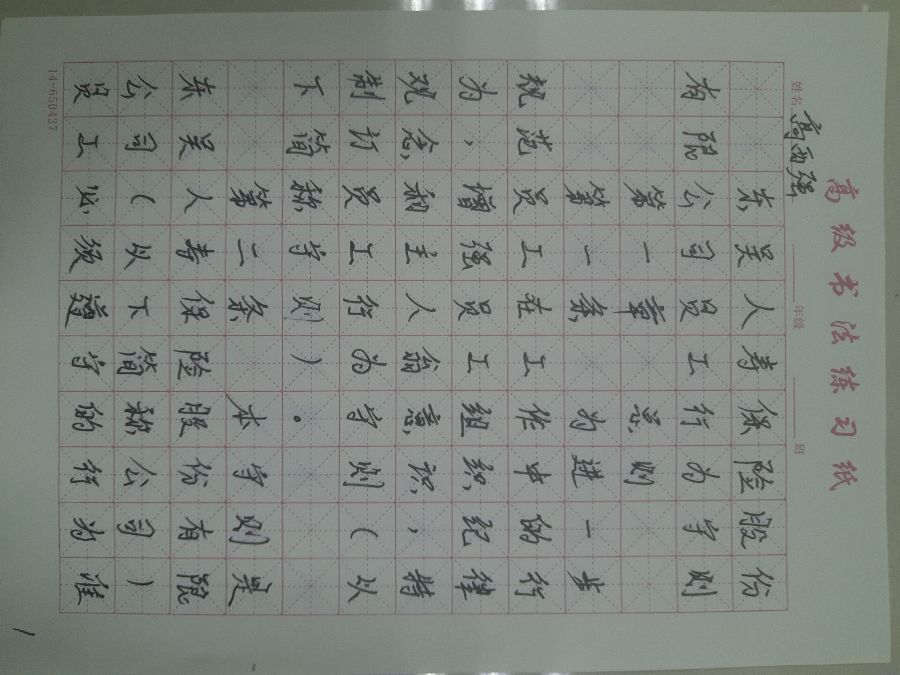 高级书法练习纸
姓名 高西强 年级 班
东吴人寿保险股份
有限公司员工行为守则
第一章 总则
第一条 为进一步
规范员工在工作中的行
为，增强员工组织纪律
观念，和主人翁意识，特
制订员工行为守则（以
下简称守则）。
第二条 本守则是
东吴人寿保险股份有限
公司（以下简称公司）
员工必须遵守的行为准
14-650437
1